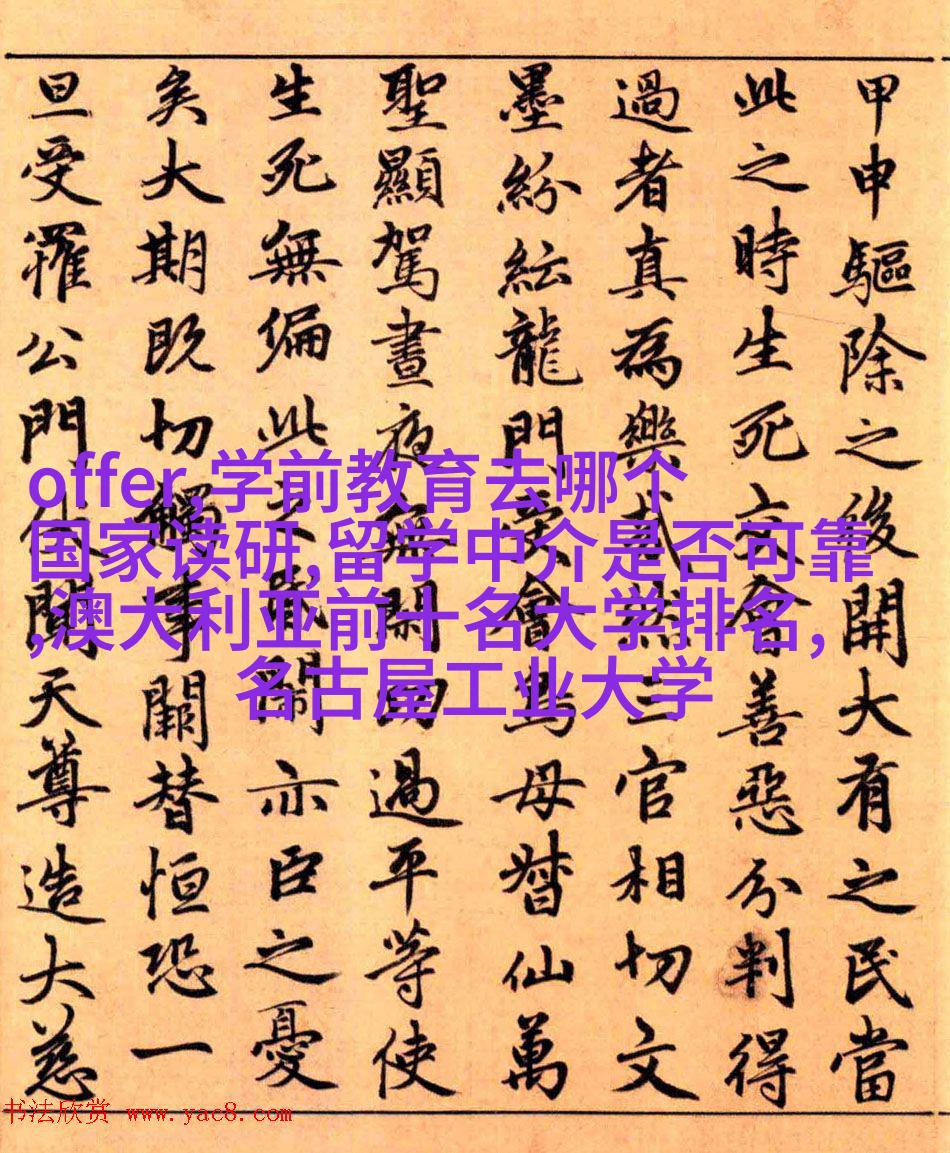 甲申驅除之後開大有之民當
此之時生死交會善惡分判得
過者真為樂哉然三官相切文
墨紛紜龍門受會鳥母督仙萬
聖顯駕晝夜無閒四過平等使
生死無偏此亦臣之憂
矣大期既切觸事闕替恒恐一
旦受罹公門伏聞天尊造大慈
offer,学前教育去哪个
国家读研,留学中介是否可靠
,澳大利亚前十名大学排名,
名古屋工业大学
书法欣赏 www.yac8.com